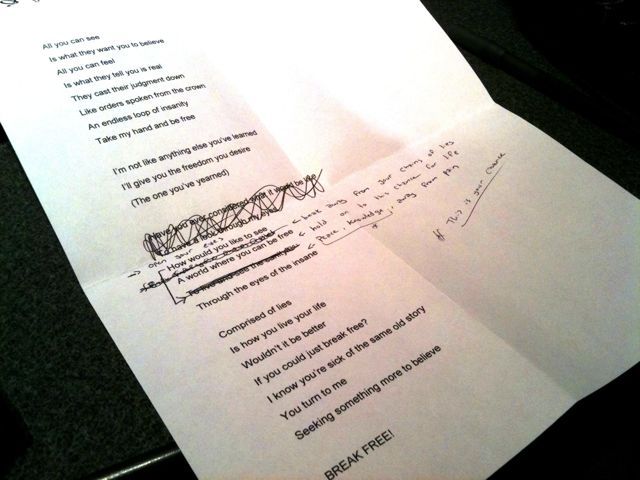 All you can see
Is what they want you to believe
All you can feel
Is what they tell you is real
They cast their judgment down
Like orders spoken from the crown
An endless loop of insanity
Take my hand and be free
I'm not like anything else you've learned
I'll give you the freedom you desire
(The one you've yearned)
Have you ever considered what it would be like
look through my eyes
open your eyes
How would you like to see
< break away from your chains of lies
A world where you can be free
< hold on to this chance for life
< Peace, Knowledge, away from pain
# This is your chance
Through the eyes of the insane
Comprised of lies
Is how you live your life
Wouldn't it be better
If you could just break free?
I know you're sick of the same old story
You turn to me
Seeking something more to believe
BREAK FREE!